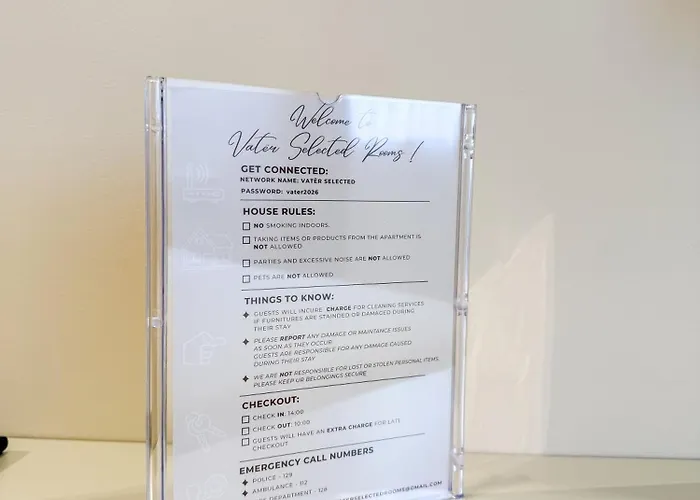 Welcome to
Vatër Selected Rooms !
GET CONNECTED:
NETWORK NAME: VATËR SELECTED
PASSWORD: vater2026
HOUSE RULES:
NO SMOKING INDOORS.
TAKING ITEMS OR PRODUCTS FROM THE APARTMENT IS
NOT ALLOWED
PARTIES AND EXCESSIVE NOISE ARE NOT ALLOWED
PETS ARE NOT ALLOWED
THINGS TO KNOW:
GUESTS WILL INCURE CHARGE FOR CLEANING SERVICES
IF FURNITURES ARE STAINDED OR DAMAGED DURING
THEIR STAY
PLEASE REPORT ANY DAMAGE OR MAINTANCE ISSUES
AS SOON AS THEY OCCUR
GUESTS ARE RESPONSIBLE FOR ANY DAMAGE CAUSED
DURING THEIR STAY
WE ARE NOT RESPONSIBLE FOR LOST OR STOLEN PERSONAL ITEMS,
PLEASE KEEP UR BELONGINGS SECURE
CHECKOUT:
CHECK IN: 14:00
CHECK OUT: 10:00
GUESTS WILL HAVE AN EXTRA CHARGE FOR LATE
CHECKOUT
EMERGENCY CALL NUMBERS
POLICE - 129
AMBULANCE - 112
DEPARTMENT - 128